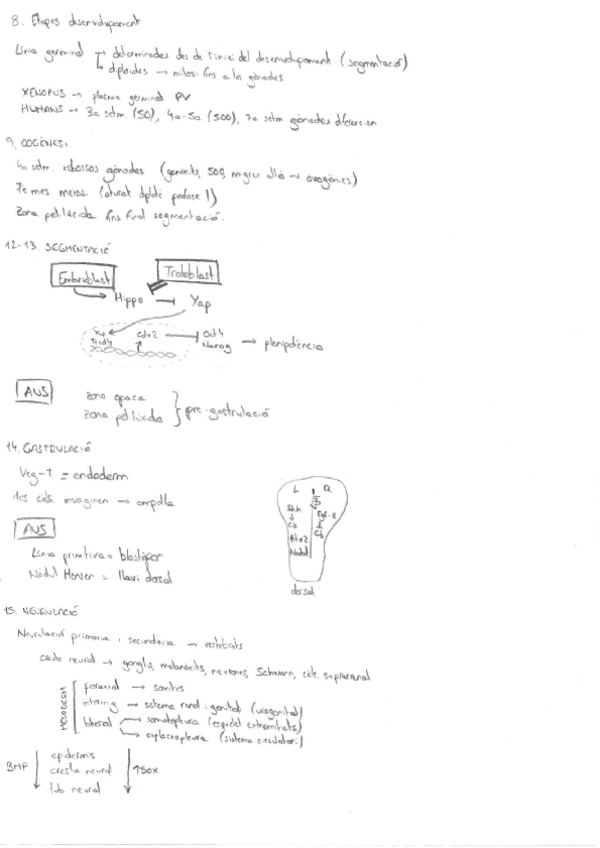 8. Etapes desenvolupament
Línia germinal → determinades des de l'inici del desenvolupament (segmentació)
→ diploides → mitosi fins a les gònades
XENOPUS → plasma germinal PV
HUMANS → 3a setm. (50), 4a-5a (500), 7a setm gònades diferencien
9. OOGÈNESI
4a setm. esbossos gònades (gonòcits, 500, migren allà → ovogònies)
7è mes meiosi (aturat diplotè profase I)
Zona pel·lúcida fins final segmentació.
12-13. SEGMENTACIÓ
Embrioblast
Trofoblast
Hippo
Yap
Yap Cdx2 Oct4
Tead4 Nanog → pluripotència
AUS
zona opaca
zona pel·lúcida } pre-gastrulació
14. GASTRULACIÓ
Veg-T = endoderm
1es cèls. invaginen → ampolla
AUS
Línia primitiva = blastòpor
Nòdul Hensen = llavi dorsal
L R
Shh
Nodal
dorsal
15. NEURULACIÓ
Neurulació primària i secundària → vertebrats
cresta neural → ganglis, melanòcits, neurones, Schwann, cèls. suprarenal
MESODERM
paraxial → somites
interm. → sistema renal i genital (urogenital)
lateral → somatopleura (esquelet extremitats)
→ esplacnopleura (sistema circulatori)
BMP
epidermis
cresta neural
tub neural
↑SOX